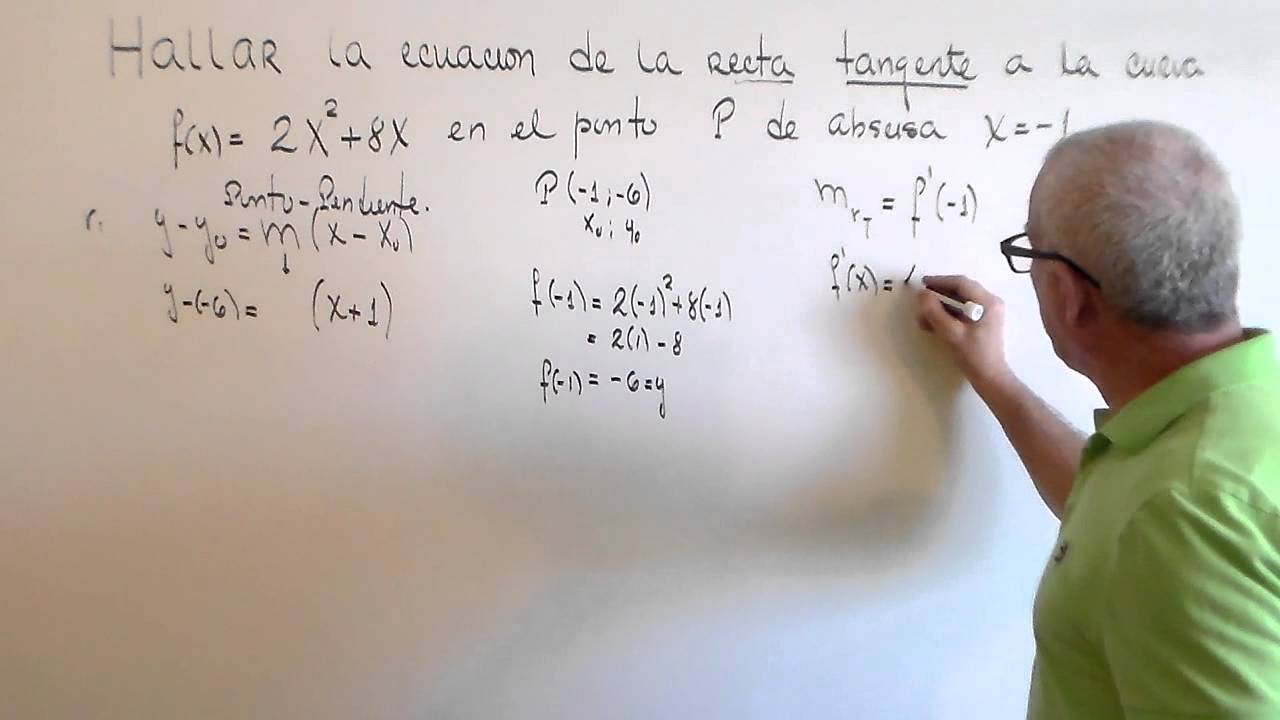 Hallar la ecuacion de la recta tangente a la curva
f(x) = 2x²+8x en el punto P de absisa x=-1
Punto-Pendiente.
r: y-y₀ = m (x-x₀)
y-(-6) = (x+1)
P(-1;-6)
x₀; y₀
f(-1) = 2(-1)²+8(-1)
= 2(1)-8
f(-1) = -6=y
m r_T = f'(-1)
f'(x) =